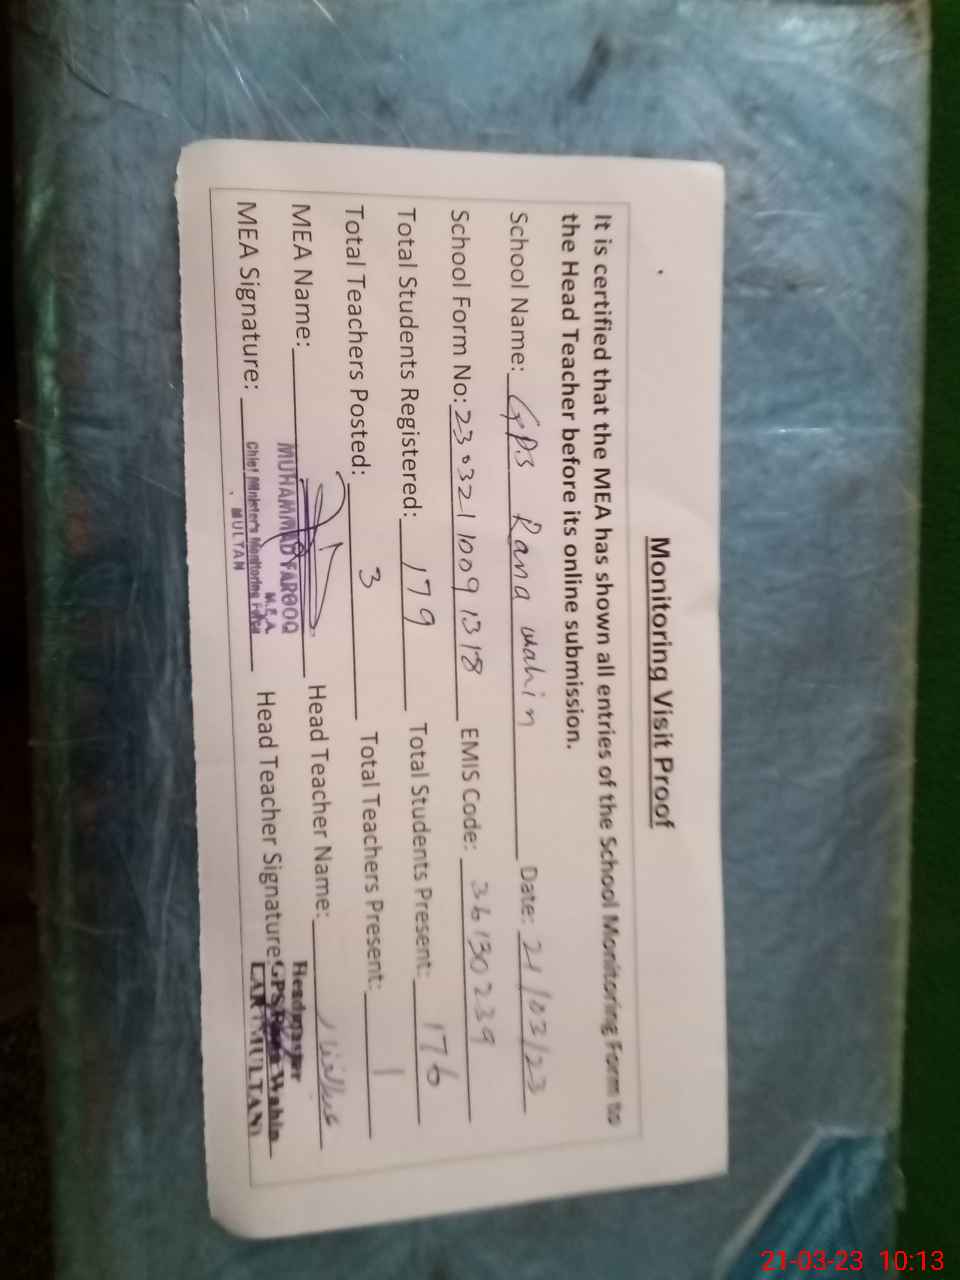 Monitoring Visit Proof
It is certified that the MEA has shown all entries of the School Monitoring Form to
the Head Teacher before its online submission.
School Name: GPS Rana wahin Date: 21/03/23
School Form No: 23032110091318 EMIS Code: 36130239
Total Students Registered: 179 Total Students Present: 176
Total Teachers Posted: 3 Total Teachers Present: 1
MEA Name: Head Teacher Name:
MUHAMMAD FAROOQ
M.E.A.
MEA Signature: Head Teacher Signature:
Chief Minister's Monitoring Force
MULTAN
Headmaster
GPS Rana Wahin
MULTAN
21-03-23 10:13